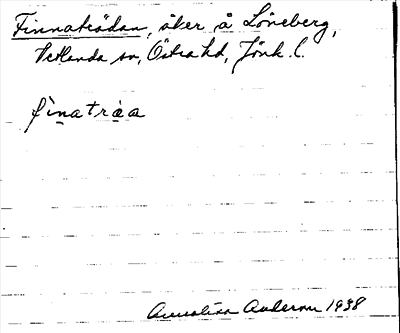 Finnaträdan, åker å Löneberg,
Vetlanda sn, Östra hd, Jönk. l.
finatràa
Annalisa Anderson 1938